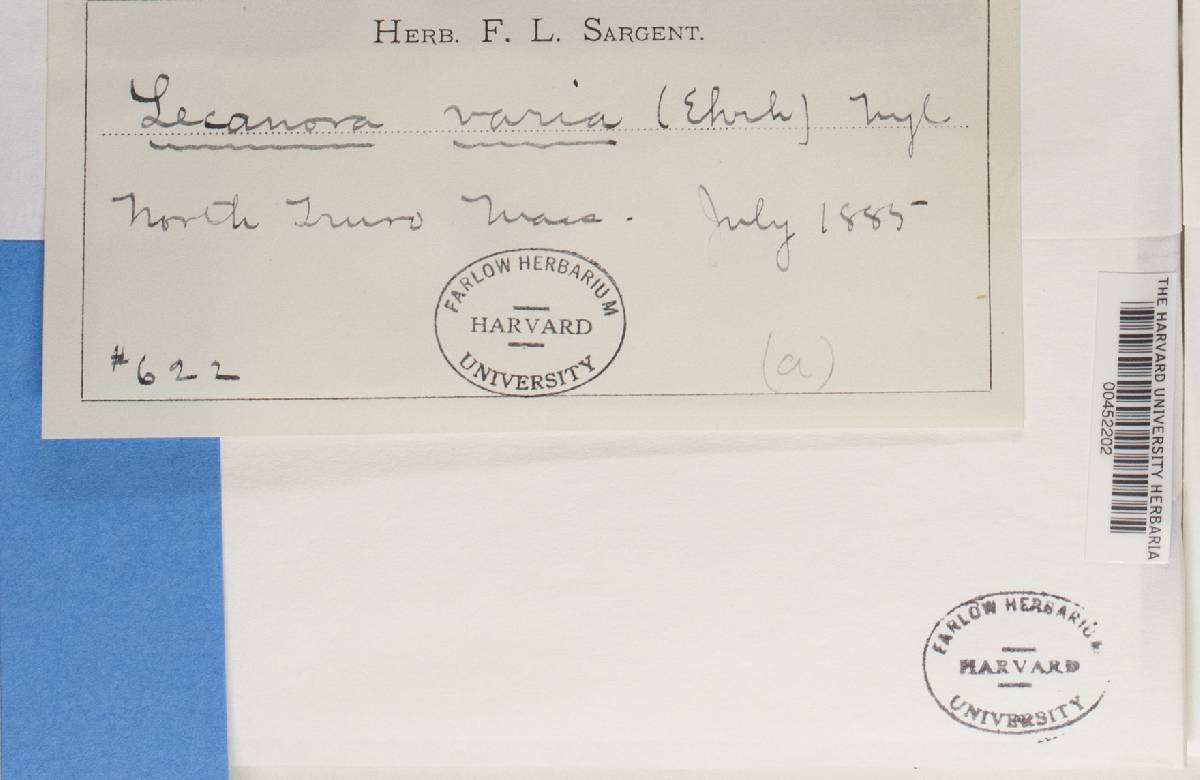 HERB. F. L. SARGENT.
Lecanora varia (Ehrh) Nyl
North Truro Mass. July 1885
FARLOW HERBARIUM
HARVARD
UNIVERSITY
#622
(a)
THE HARVARD UNIVERSITY HERBARIA
00452202
FARLOW HERBARIUM
HARVARD
UNIVERSITY